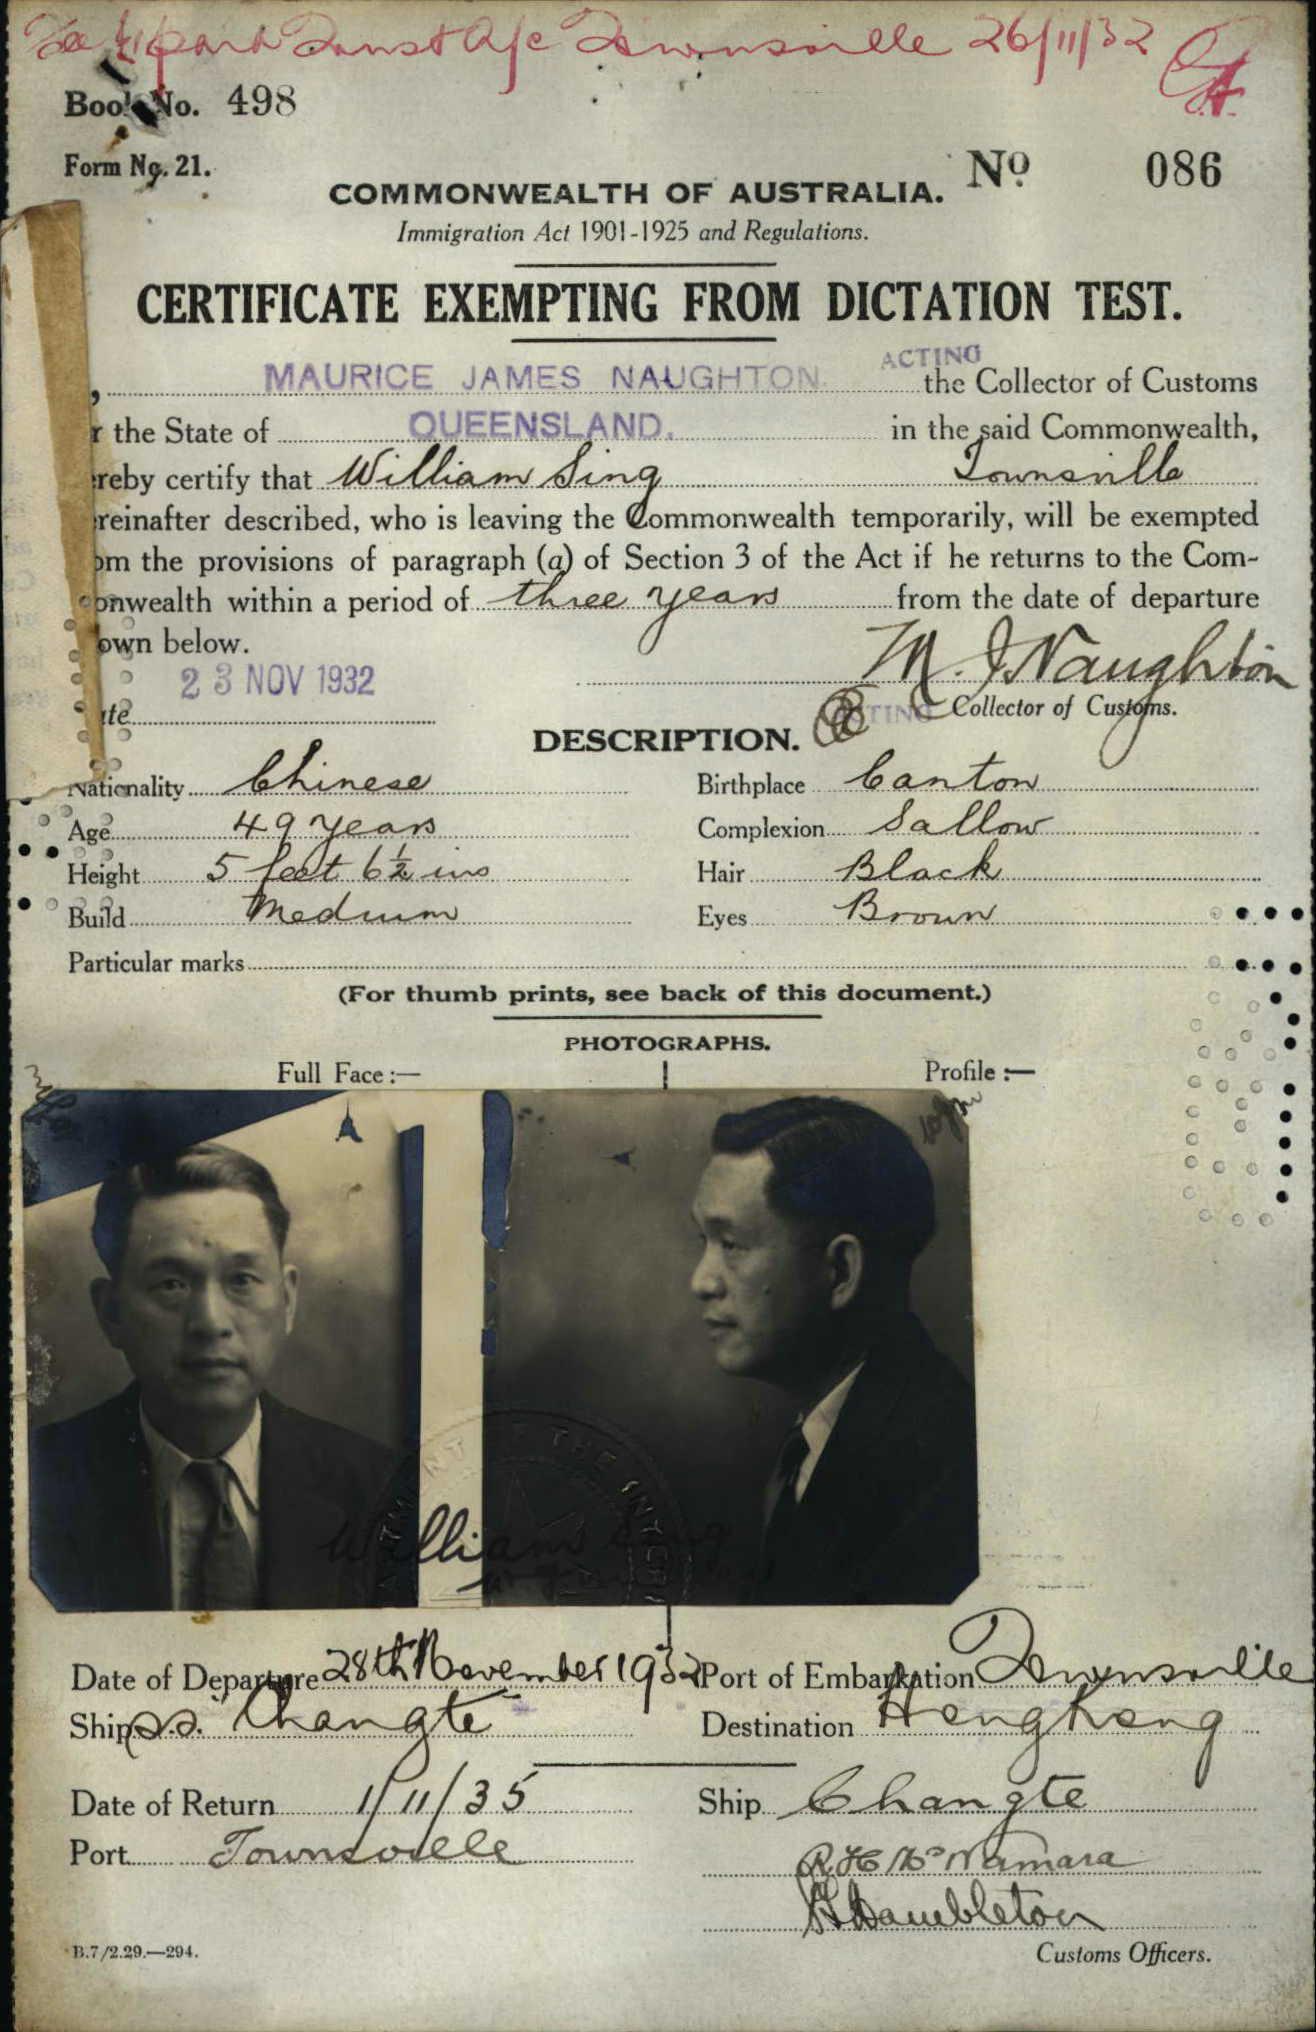 Fee £1 paid Trust A/c Townsville 26/11/32
Book No. 498
Form No. 21.
No. 086
COMMONWEALTH OF AUSTRALIA.
Immigration Act 1901-1925 and Regulations.
CERTIFICATE EXEMPTING FROM DICTATION TEST.
, MAURICE JAMES NAUGHTON ACTING the Collector of Customs
r the State of QUEENSLAND. in the said Commonwealth,
ereby certify that William Sing Townsville
ereinafter described, who is leaving the Commonwealth temporarily, will be exempted
om the provisions of paragraph (a) of Section 3 of the Act if he returns to the Com-
onwealth within a period of three years from the date of departure
own below.
23 NOV 1932
M. J Naughton
ate
ACTING Collector of Customs.
DESCRIPTION.
Nationality Chinese Birthplace Canton
Age 49 years Complexion Sallow
Height 5 feet 6½ ins Hair Black
Build Medium Eyes Brown
Particular marks
(For thumb prints, see back of this document.)
PHOTOGRAPHS.
Full Face :— Profile :—
William Sing
Date of Departure 28th November 1932 Port of Embarkation Townsville
Ship s.s. Changte Destination HongKong
Date of Return 1/11/35 Ship Changte
Port Townsville R H McNamara
Hambleton
B.7/2.29.—294. Customs Officers.